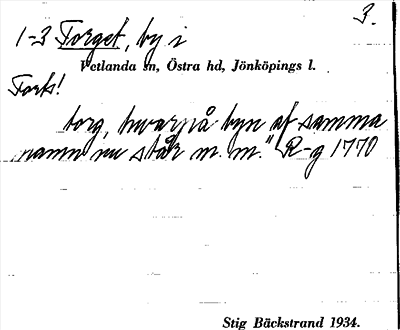 3.
1-3 Torget, by i
Vetlanda sn, Östra hd, Jönköpings l.
Forts!
torg, hvarpå byn af samma
namn nu står m. m." R-g 1770
Stig Bäckstrand 1934.